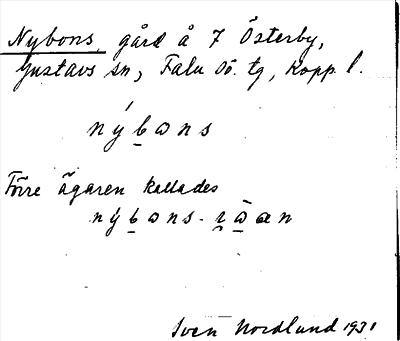 Nybons, gård å 7 Österby,
Gustavs sn, Falu sö. tg, Kopp. l.
nýb̲ɷns
Förre ägaren kallades
nýb̲ɷns-
Sven Nordlund 1931